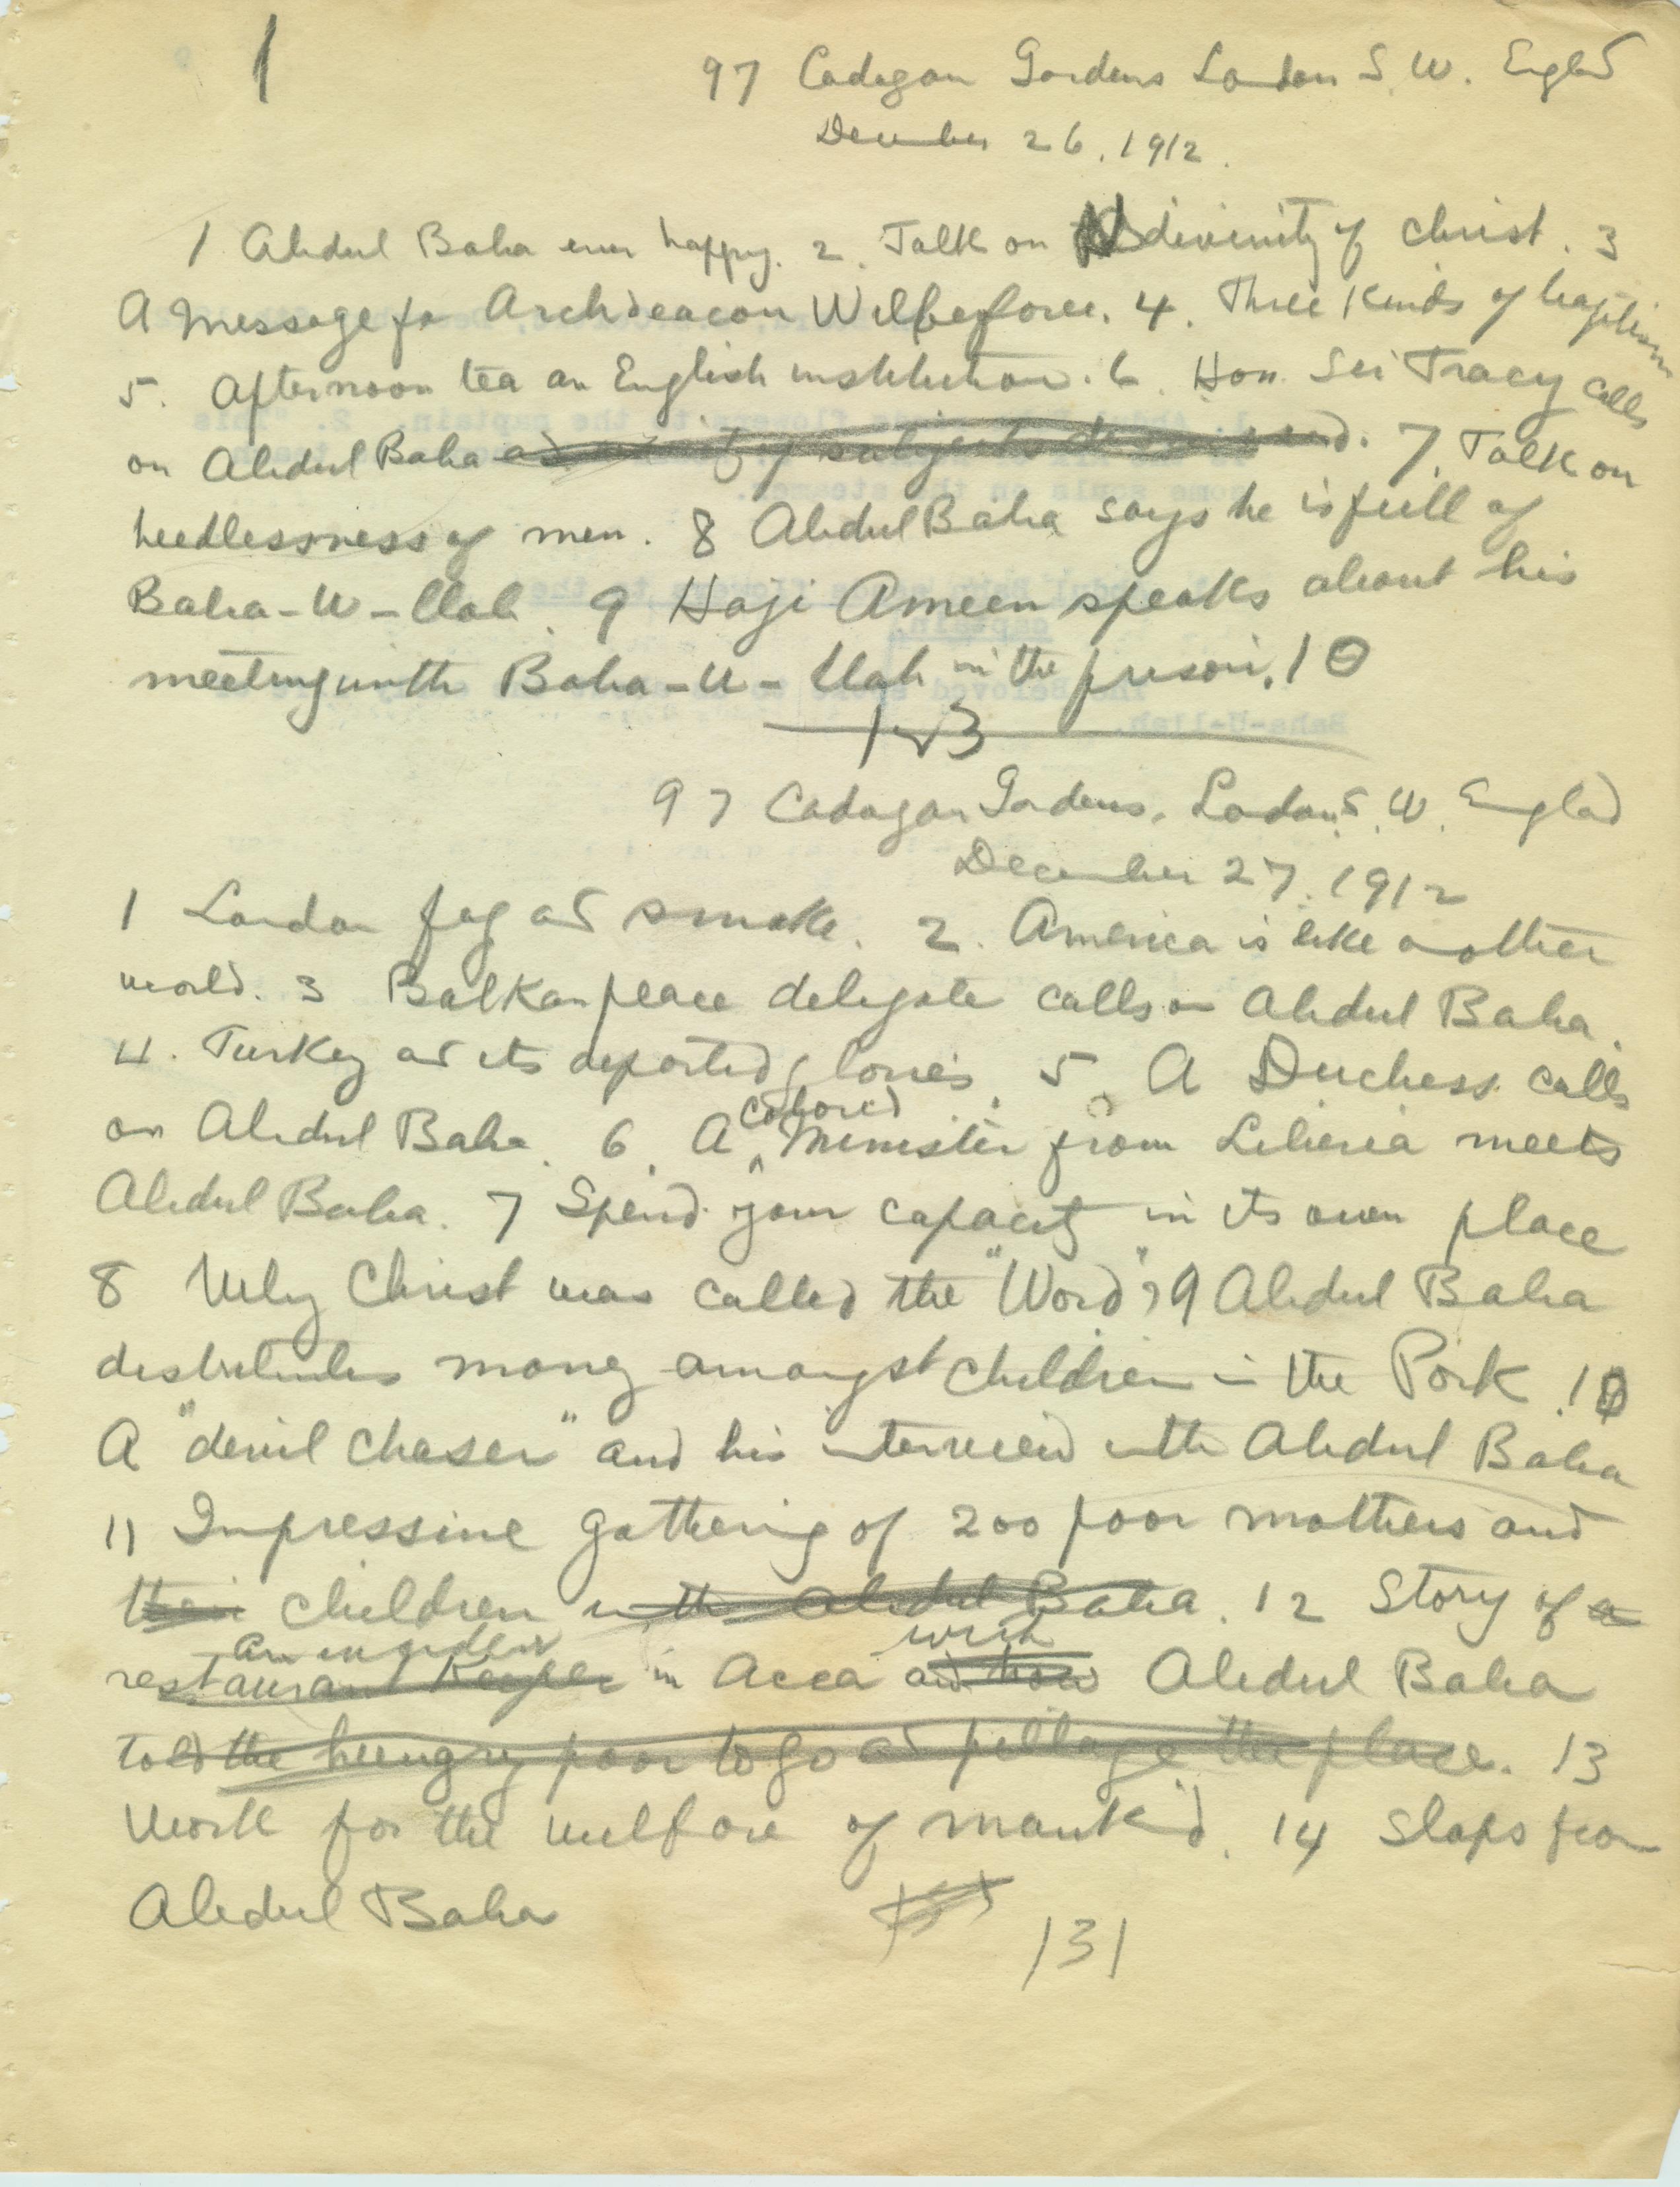 1
97 Cadogan Gardens London S. W. Englad
December 26, 1912.
1 Abdul Baha ever happy. 2. Talk on divinity of Christ. 3
A Message fo Archdeacon Wilberforce. 4. Three Kinds of baptism
5. Afternoon tea an English institution. 6. Hon Sir Tracy calls
on Abdul Baha ad of subjects discussed. 7. Talk on
heedlessness of men. 8 Abdul Baha says he is full of
Baha-U-llah. 9 Haji Ameen speaks about his
meeting with Baha-U-llah in the prison. 10
97 Cadogan Gardens, London S. W. Englad
December 27, 1912
1 London fog ad smoke. 2. America is like another
world. 3 Balkan peace delegate calls on Abdul Baha.
4. Turkey ad its departed glories. 5. A Duchess calls
on Abdul Baha. 6. A colored Minister from Liberia meets
Abdul Baha. 7 Spend your capacity in its own place
8 Why Christ was called the "Word"? 9 Abdul Baha
distributes money amongst children in the Park. 10
A "devil chaser" and his interview with Abdul Baha
11 Impressive gathering of 200 poor mothers and
their children with Abdul Baha. 12 Story of a
an incident with
restaurant keeper in Acca ad how Abdul Baha
told the hungry poor to go ad pillage the place. 13
Work for the welfare of mankid. 14 Slaps from
Abdul Baha
131